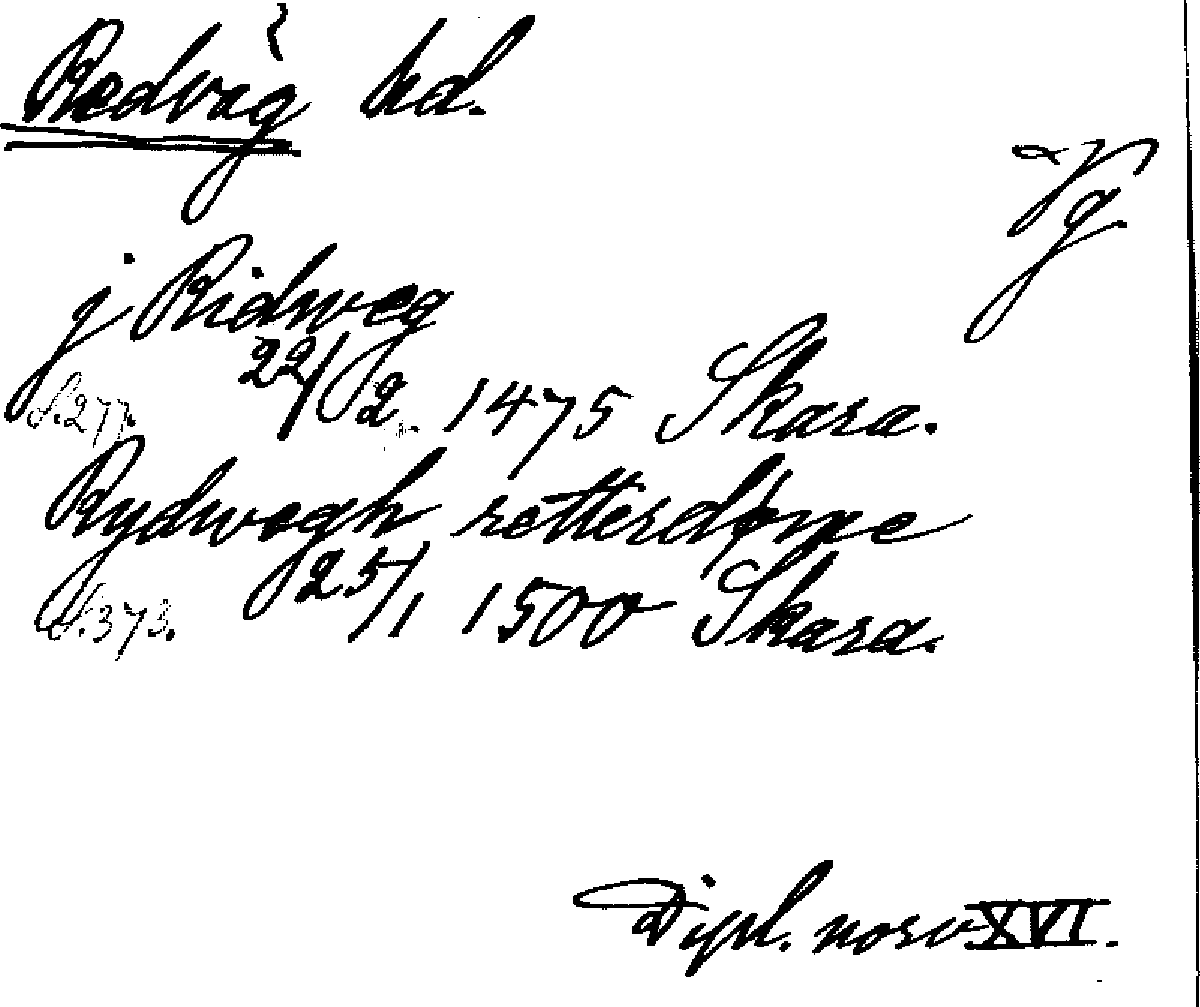 Redväg hd.
Vg
j Ridweg
S. 277. 22/2 1475 Skara.
Rydwægh rætterdøme
S. 373. 25/1 1500 Skara.
Dipl. norv XVI.